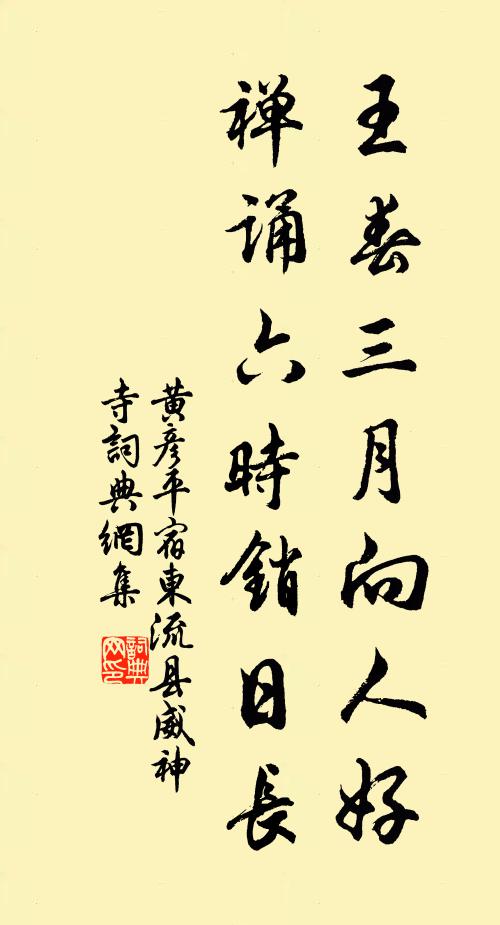 王春三月向人好
禅诵六時銷日長
黄彦平宿東流县威神
寺詞典網集
詞典網印